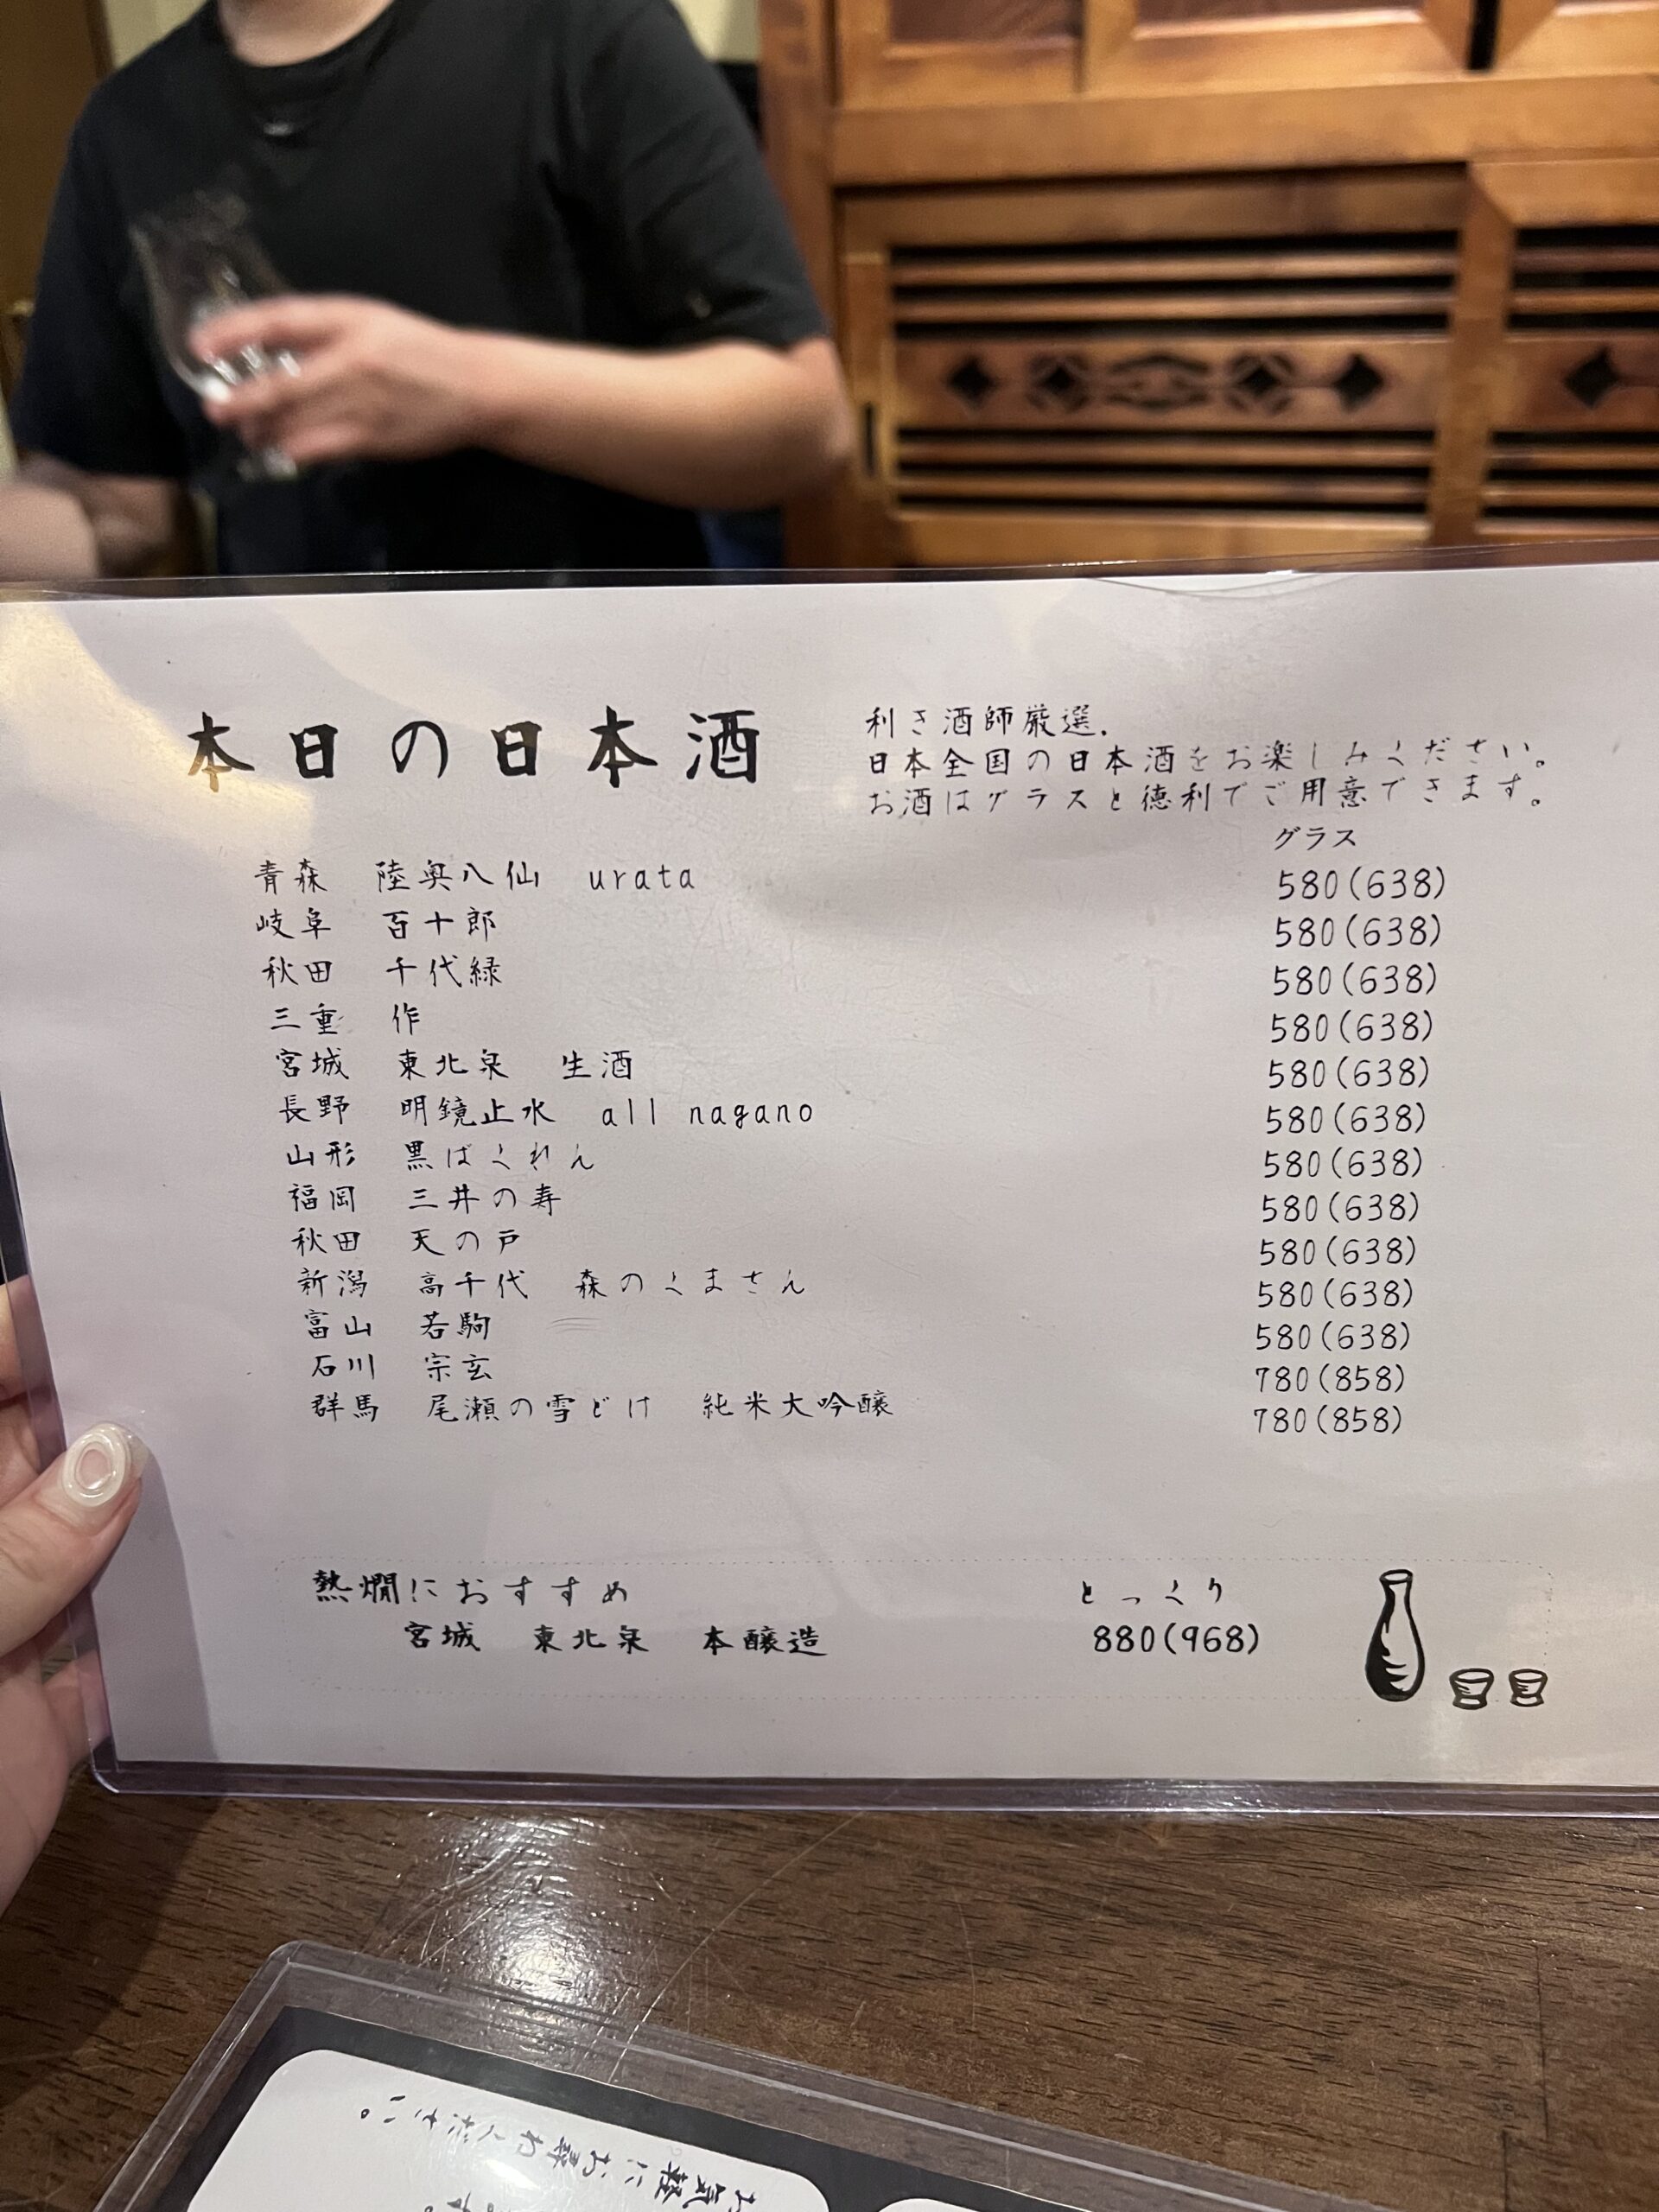 本日の日本酒
利き酒師厳選.
日本全国の日本酒をお楽しみください。
お酒はグラスと徳利でご用意できます。
グラス
青森 陸奥八仙 urata 580(638)
岐阜 百十郎 580(638)
秋田 千代緑 580(638)
三重 作 580(638)
宮城 東北泉 生酒 580(638)
長野 明鏡止水 all nagano 580(638)
山形 黒ばくれん 580(638)
福岡 三井の寿 580(638)
秋田 天の戸 580(638)
新潟 高千代 森のくまさん 580(638)
富山 若駒 580(638)
石川 宗玄 780(858)
群馬 尾瀬の雪どけ 純米大吟醸 780(858)
熱燗におすすめ とっくり
宮城 東北泉 本醸造 880(968)
お気軽にお尋ねください。